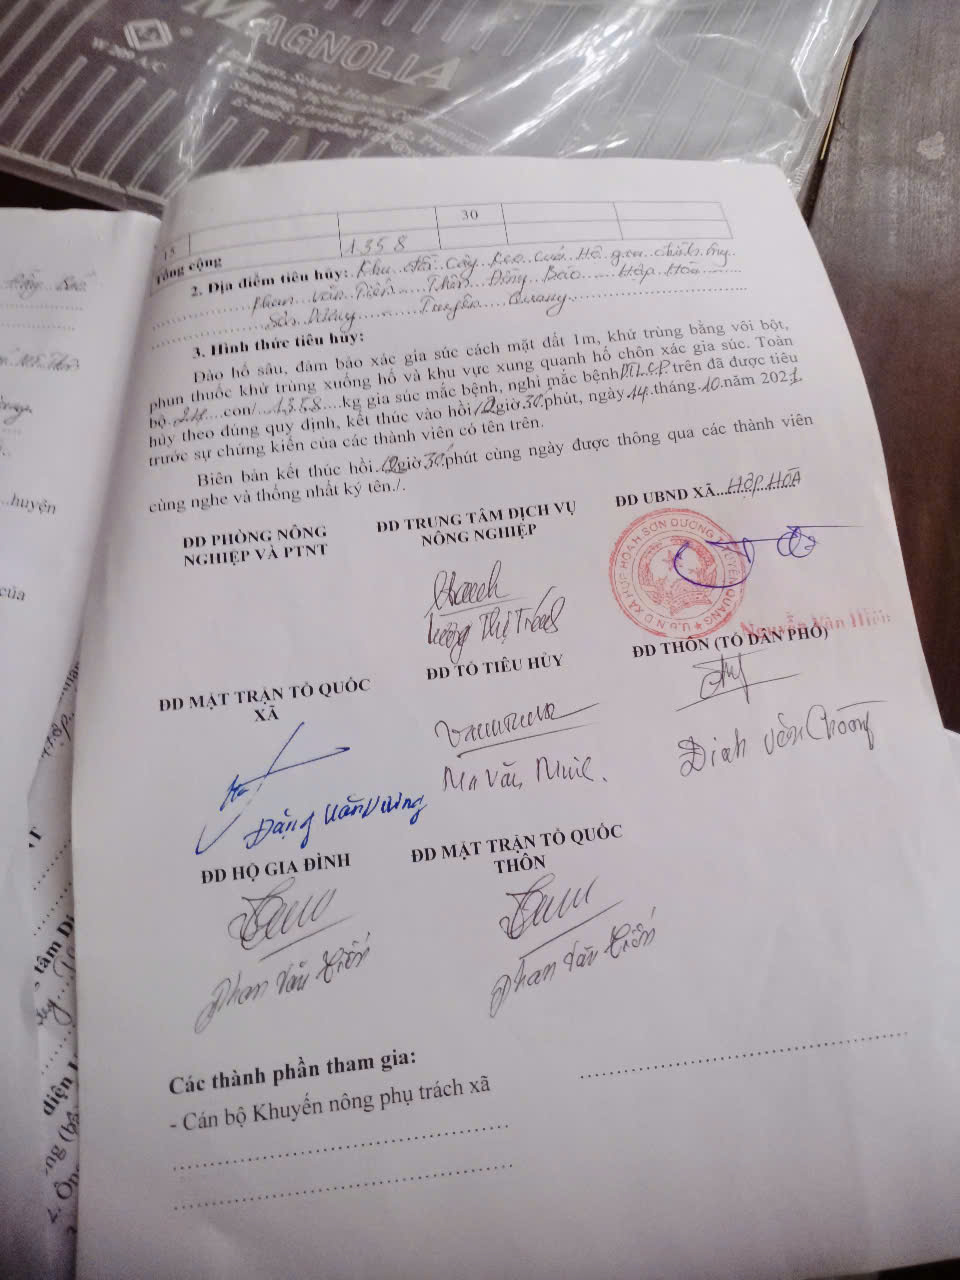 MAGNOLIA
W 209 A/C
15
30
Tổng cộng
1358
2. Địa điểm tiêu hủy: Khu đồi cây keo của Hộ gia đình ông
Phan Văn Tiến Thôn Đồng Báo Hợp Hòa
Sơn Dương Tuyên Quang
3. Hình thức tiêu hủy:
Đào hố sâu, đảm bảo xác gia súc cách mặt đất 1m, khử trùng bằng vôi bột,
phun thuốc khử trùng xuống hố và khu vực xung quanh hố chôn xác gia súc. Toàn
bộ con/ 1358 kg gia súc mắc bệnh, nghi mắc bệnh DTLCP trên đã được tiêu
hủy theo đúng quy định, kết thúc vào hồi giờ 30 phút, ngày 14 tháng 10 năm 2021
trước sự chứng kiến của các thành viên có tên trên.
Biên bản kết thúc hồi giờ 30 phút cùng ngày được thông qua các thành viên
cùng nghe và thống nhất ký tên./.
ĐD PHÒNG NÔNG
NGHIỆP VÀ PTNT
ĐD TRUNG TÂM DỊCH VỤ
NÔNG NGHIỆP
ĐD UBND XÃ HỢP HÒA
U.B.N.D XÃ HỢP HÒA H SƠN DƯƠNG T TUYÊN QUANG
Nguyễn Văn Hiến
ĐD MẶT TRẬN TỔ QUỐC
XÃ
ĐD TỔ TIÊU HỦY
ĐD THÔN (TỔ DÂN PHỐ)
Đặng Văn Vương
Ma Văn
Đinh Văn
ĐD HỘ GIA ĐÌNH
ĐD MẶT TRẬN TỔ QUỐC
THÔN
Phan Văn Tiến
Phan Văn Tiến
Các thành phần tham gia:
- Cán bộ Khuyến nông phụ trách xã
huyện
của
tâm